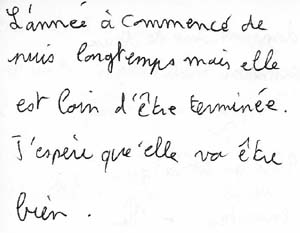 L'année à commencé de
puis longtemps mais elle
est loin d'être terminée.
J'espère que elle va être
bien.